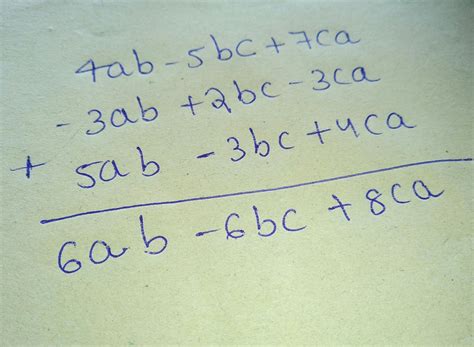 4ab - 5bc + 7ca
- 3ab + 2bc - 3ca
+ 5ab - 3bc + 4ca
6ab - 6bc + 8ca